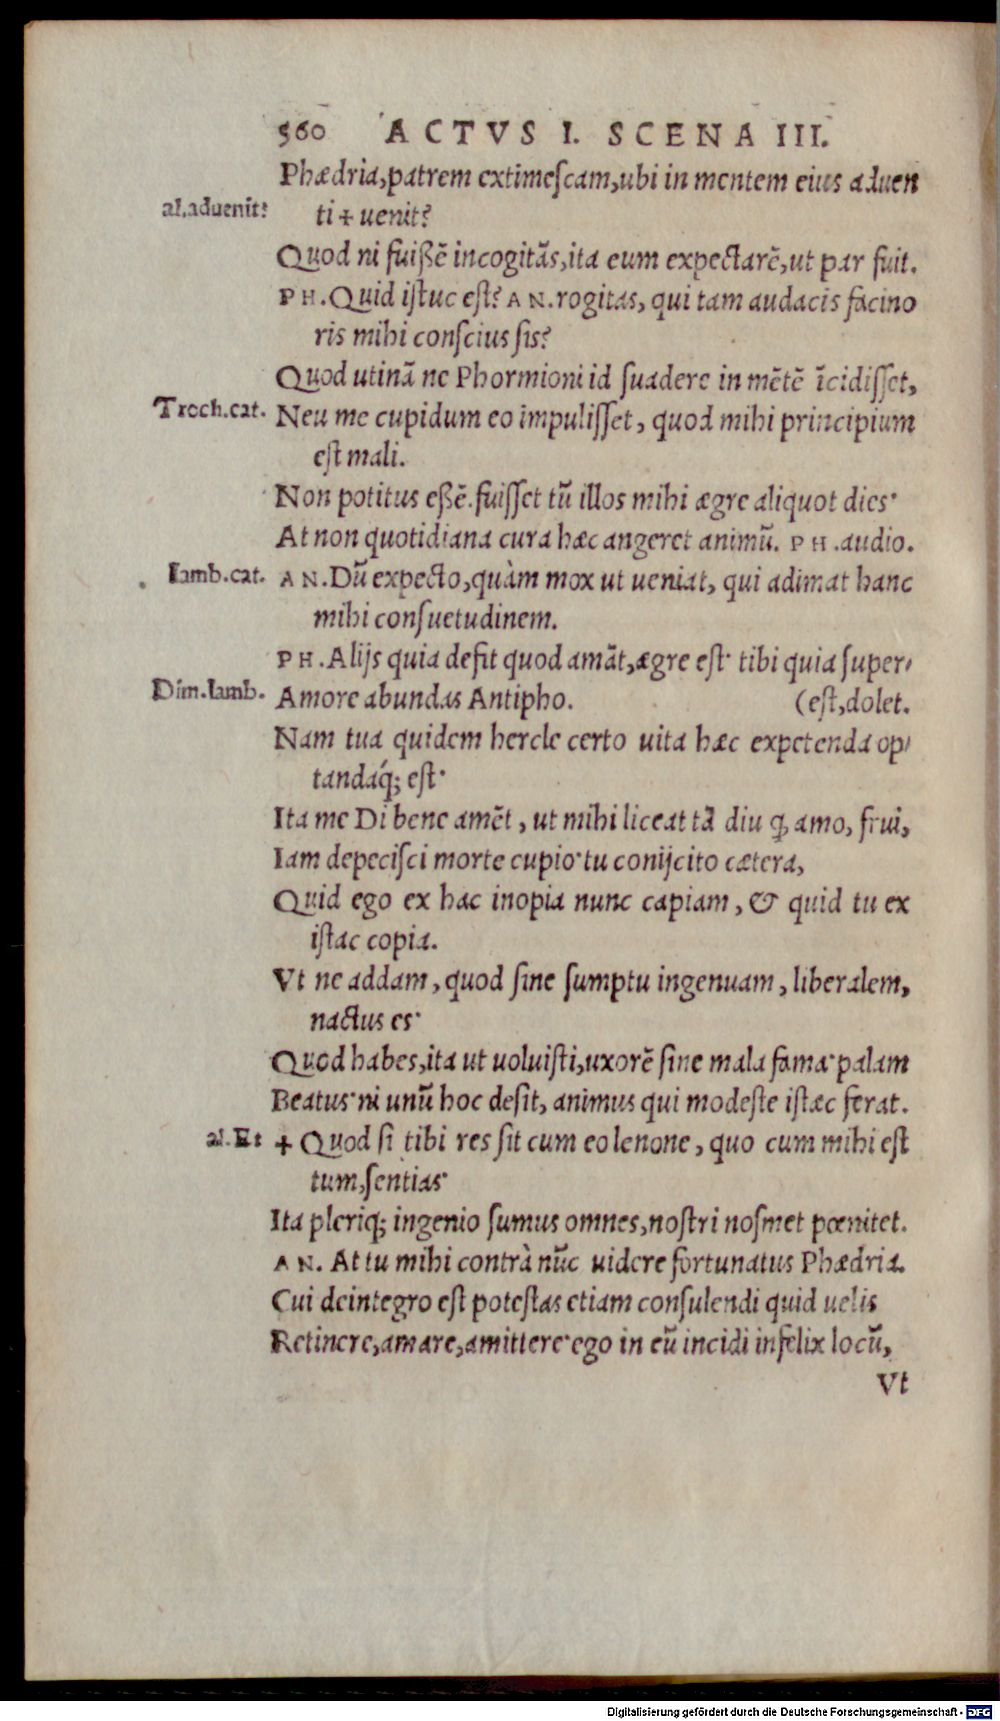 560 ACTVS I. SCENA III.
Phædria,patrem extimeſcam,ubi in mentem eius aduen
al.aduenit? ti + uenit?
Quod ni fuißē incogitãs,ita eum expectarē,ut par fuit.
PH.Quid iſtuc eſt? AN.rogitas, qui tam audacis facino
ris mihi conſcius ſis?
Quod utinã ne Phormioni id ſuadere in mētē ĩcidiſſet,
Troch.cat. Neu me cupidum eo impuliſſet, quod mihi principium
eſt mali.
Non potitus eßē.fuiſſet tũ illos mihi ægre aliquot dies·
At non quotidiana cura hæc angeret animũ. PH.audio.
Iamb.cat. AN.Dũ expecto,quàm mox ut ueniat, qui adimat hanc
mihi conſuetudinem.
PH.Alijs quia defit quod amãt,ægre eſt· tibi quia ſuper/
Dim.Iamb. Amore abundas Antipho. (eſt,dolet.
Nam tua quidem hercle certo uita hæc expetenda op/
tandáq; eſt·
Ita me Di bene amēt, ut mihi liceat tã diu ꝙ amo, frui,
Iam depeciſci morte cupio·tu conijcito cætera,
Quid ego ex hac inopia nunc capiam, & quid tu ex
iſtac copia.
Vt ne addam, quod ſine ſumptu ingenuam, liberalem,
nactus es·
Quod habes,ita ut uoluiſti,uxorē ſine mala fama·palam
Beatus·ni unũ hoc deſit, animus qui modeſte iſtæc ferat.
al.Et + Quod ſi tibi res ſit cum eo lenone, quo cum mihi eſt
tum,ſentias·
Ita pleriq; ingenio ſumus omnes,noſtri noſmet pœnitet.
AN. At tu mihi contrà nũc uidere fortunatus Phædria.
Cui deintegro eſt poteſtas etiam conſulendi quid uelis
Retinere,amare,amittere·ego in eũ incidi infelix locũ,
Vt
Digitalisierung gefördert durch die Deutsche Forschungsgemeinschaft - DFG